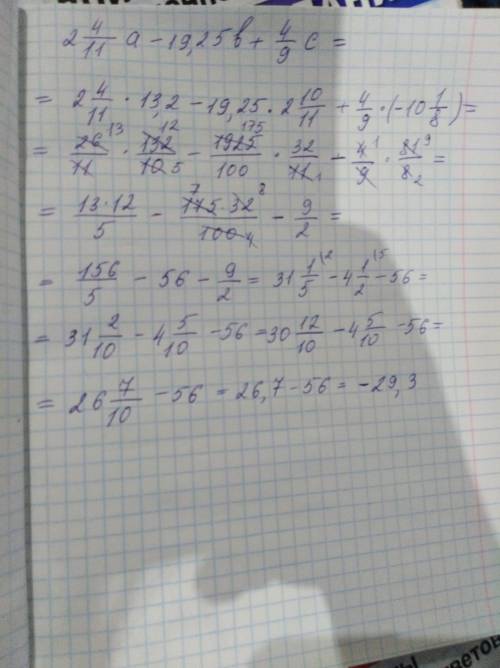 2 4/11 a - 19,25 b + 4/9 c =
= 2 4/11 · 13,2 - 19,25 · 2 10/11 + 4/9 · (-10 1/8) =
= 26 13/11 · 132 12/10 5 - 1925 175/100 · 32/11 1 - 4 1/9 · 81 9/8 2 =
= 13·12/5 - 175 7·32 8/100 4 - 9/2 =
= 156/5 - 56 - 9/2 = 31 1/5 (2 - 4 1/2 (5 - 56 =
= 31 2/10 - 4 5/10 - 56 = 30 12/10 - 4 5/10 - 56 =
= 26 7/10 - 56 = 26,7 - 56 = -29,3